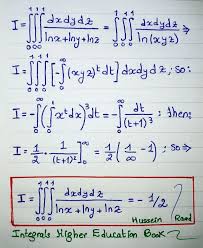 I = ∫₀¹∫₀¹∫₀¹ dxdydz / (lnx+lny+lnz) = ∫₀¹∫₀¹∫₀¹ dxdydz / ln(xyz) ⇒
I = ∫₀¹∫₀¹∫₀¹ [-∫₀^∞ (xyz)^t dt] dxdydz ; so:
I = -∫₀^∞ (∫₀¹ x^t dx)³ dt = -∫₀^∞ dt / (t+1)³ ; then:
I = 1/2 · 1/(t+1)² ]₀^∞ = 1/2 (1/∞ - 1) ; so ⇒
I = ∫₀¹∫₀¹∫₀¹ dxdydz / (lnx+lny+lnz) = -1/2
Hussein Raad
Integrals Higher Education Book